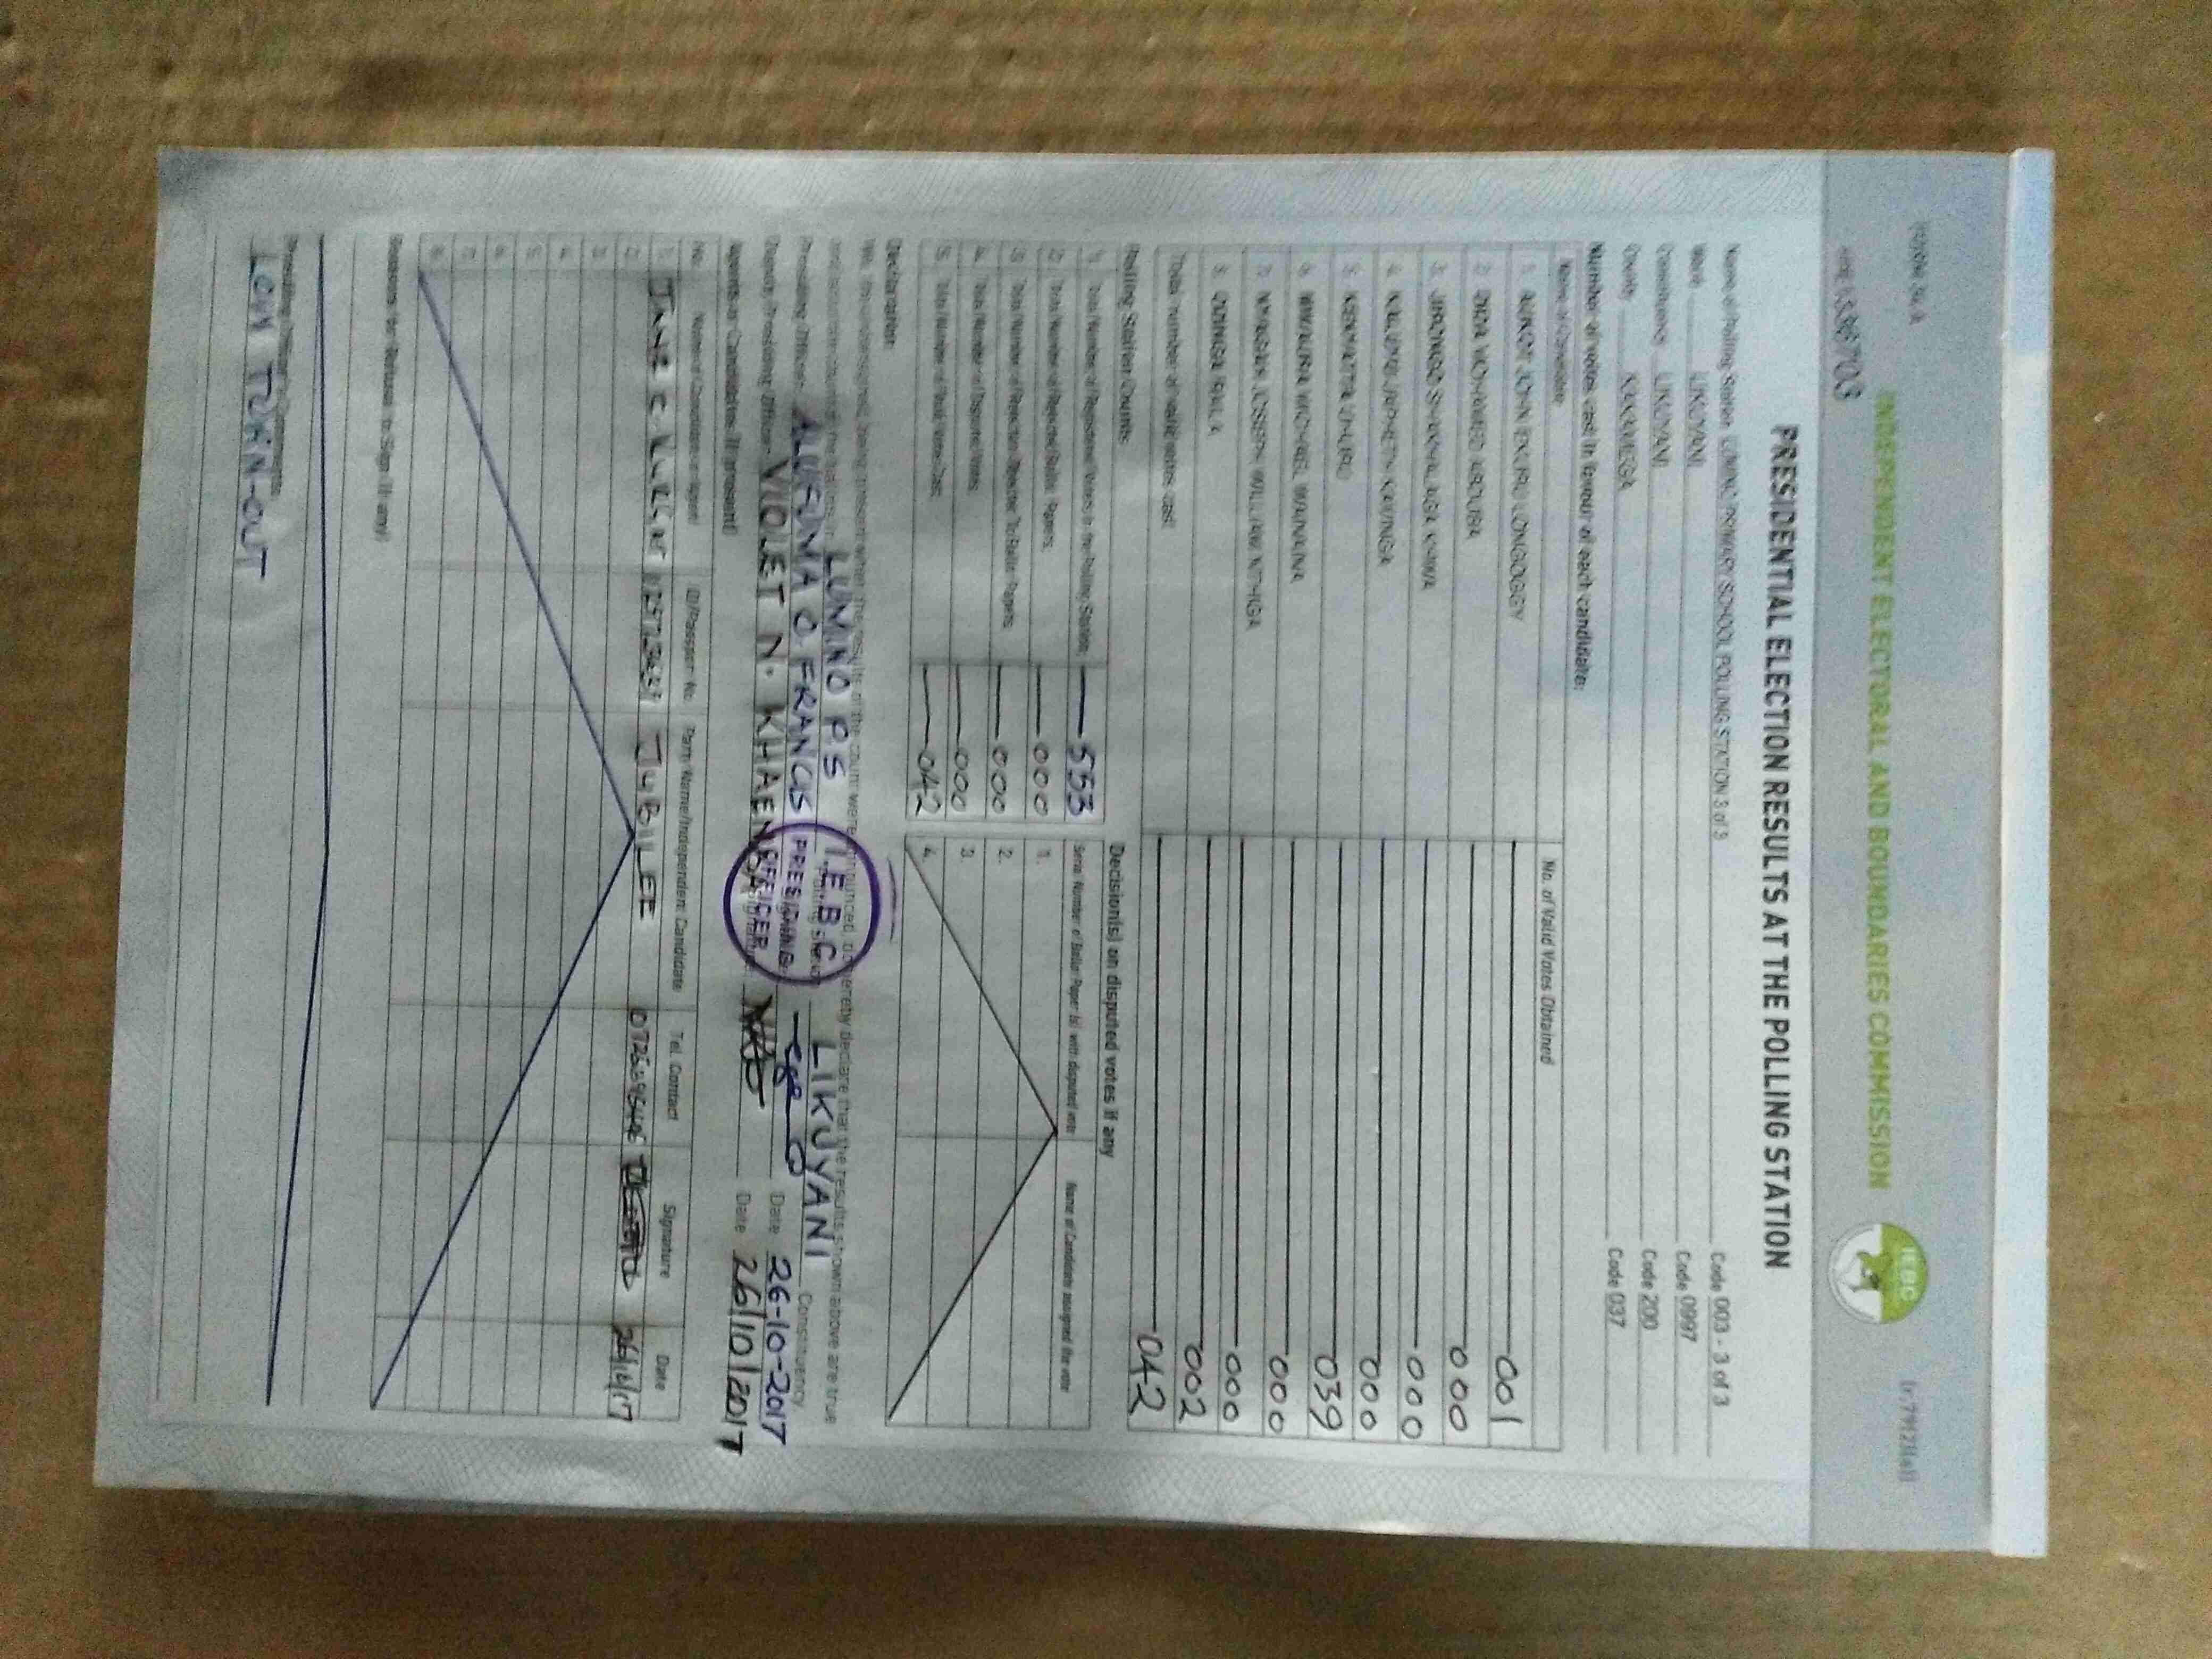 FORM 34 A
INDEPENDENT ELECTORAL AND BOUNDARIES COMMISSION
IEBC
PRESIDENTIAL ELECTION RESULTS AT THE POLLING STATION
Name of Polling Station LUMINO PRIMARY SCHOOL POLLING STATION 3 of 3 Code 003 - 3 of 3
Ward LIKUYANI Code 0997
Constituency LIKUYANI Code 200
County KAKAMEGA Code 037
Number of votes cast in favour of each candidate:
Name of Candidate No. of Valid Votes Obtained
1. AUKOT JOHN EKURU LONGOGGY 001
2. DIDA MOHAMED ABDUBA 000
3. JIRONGO SHAKHALAGA KHWA 000
4. KALUYU JAPHETH KAVINGA 000
5. KENYATTA UHURU 039
6. MWAURA MICHAEL WAINAINA 000
7. NYAGAH JOSEPH WILLIAM NTHIGA 000
8. ODINGA RAILA 002
Total number of valid votes cast 042
Polling Station Counts
1. Total Number of Registered Voters in the Polling Station 553
2. Total Number of Rejected Ballot Papers 000
3. Total Number of Rejection Objected To Ballot Papers 000
4. Total Number of Disputed Votes 000
5. Total Number of Valid Votes Cast 042
Decision(s) on disputed votes if any
Serial Number of Ballot Paper (s) with disputed vote Name of Candidate assigned the vote
1.
2.
3.
4.
Declaration
We, the undersigned, being present when the results of the count were announced, do hereby declare that the results shown above are true
and accurate count of the ballots in LUMINO P S Polling Station LIKUYANI Constituency
Presiding Officer ALUFUMA O FRANCIS Date 26-10-2017
Deputy Presiding Officer VIOLET N. KHAENDA Date 26/10/2017
I.E.B.C
PRESIDING
OFFICER
Agents or Candidates (if present)
No. Name of Candidate or Agent ID/Passport No. Party Name/Independent Candidate Tel. Contact Signature Date
1. JUBILEE
2.
3.
4.
5.
6.
7.
8.
Reasons for Refusal to Sign (if any)
Presiding Officer's Comments
LOW TURN-OUT